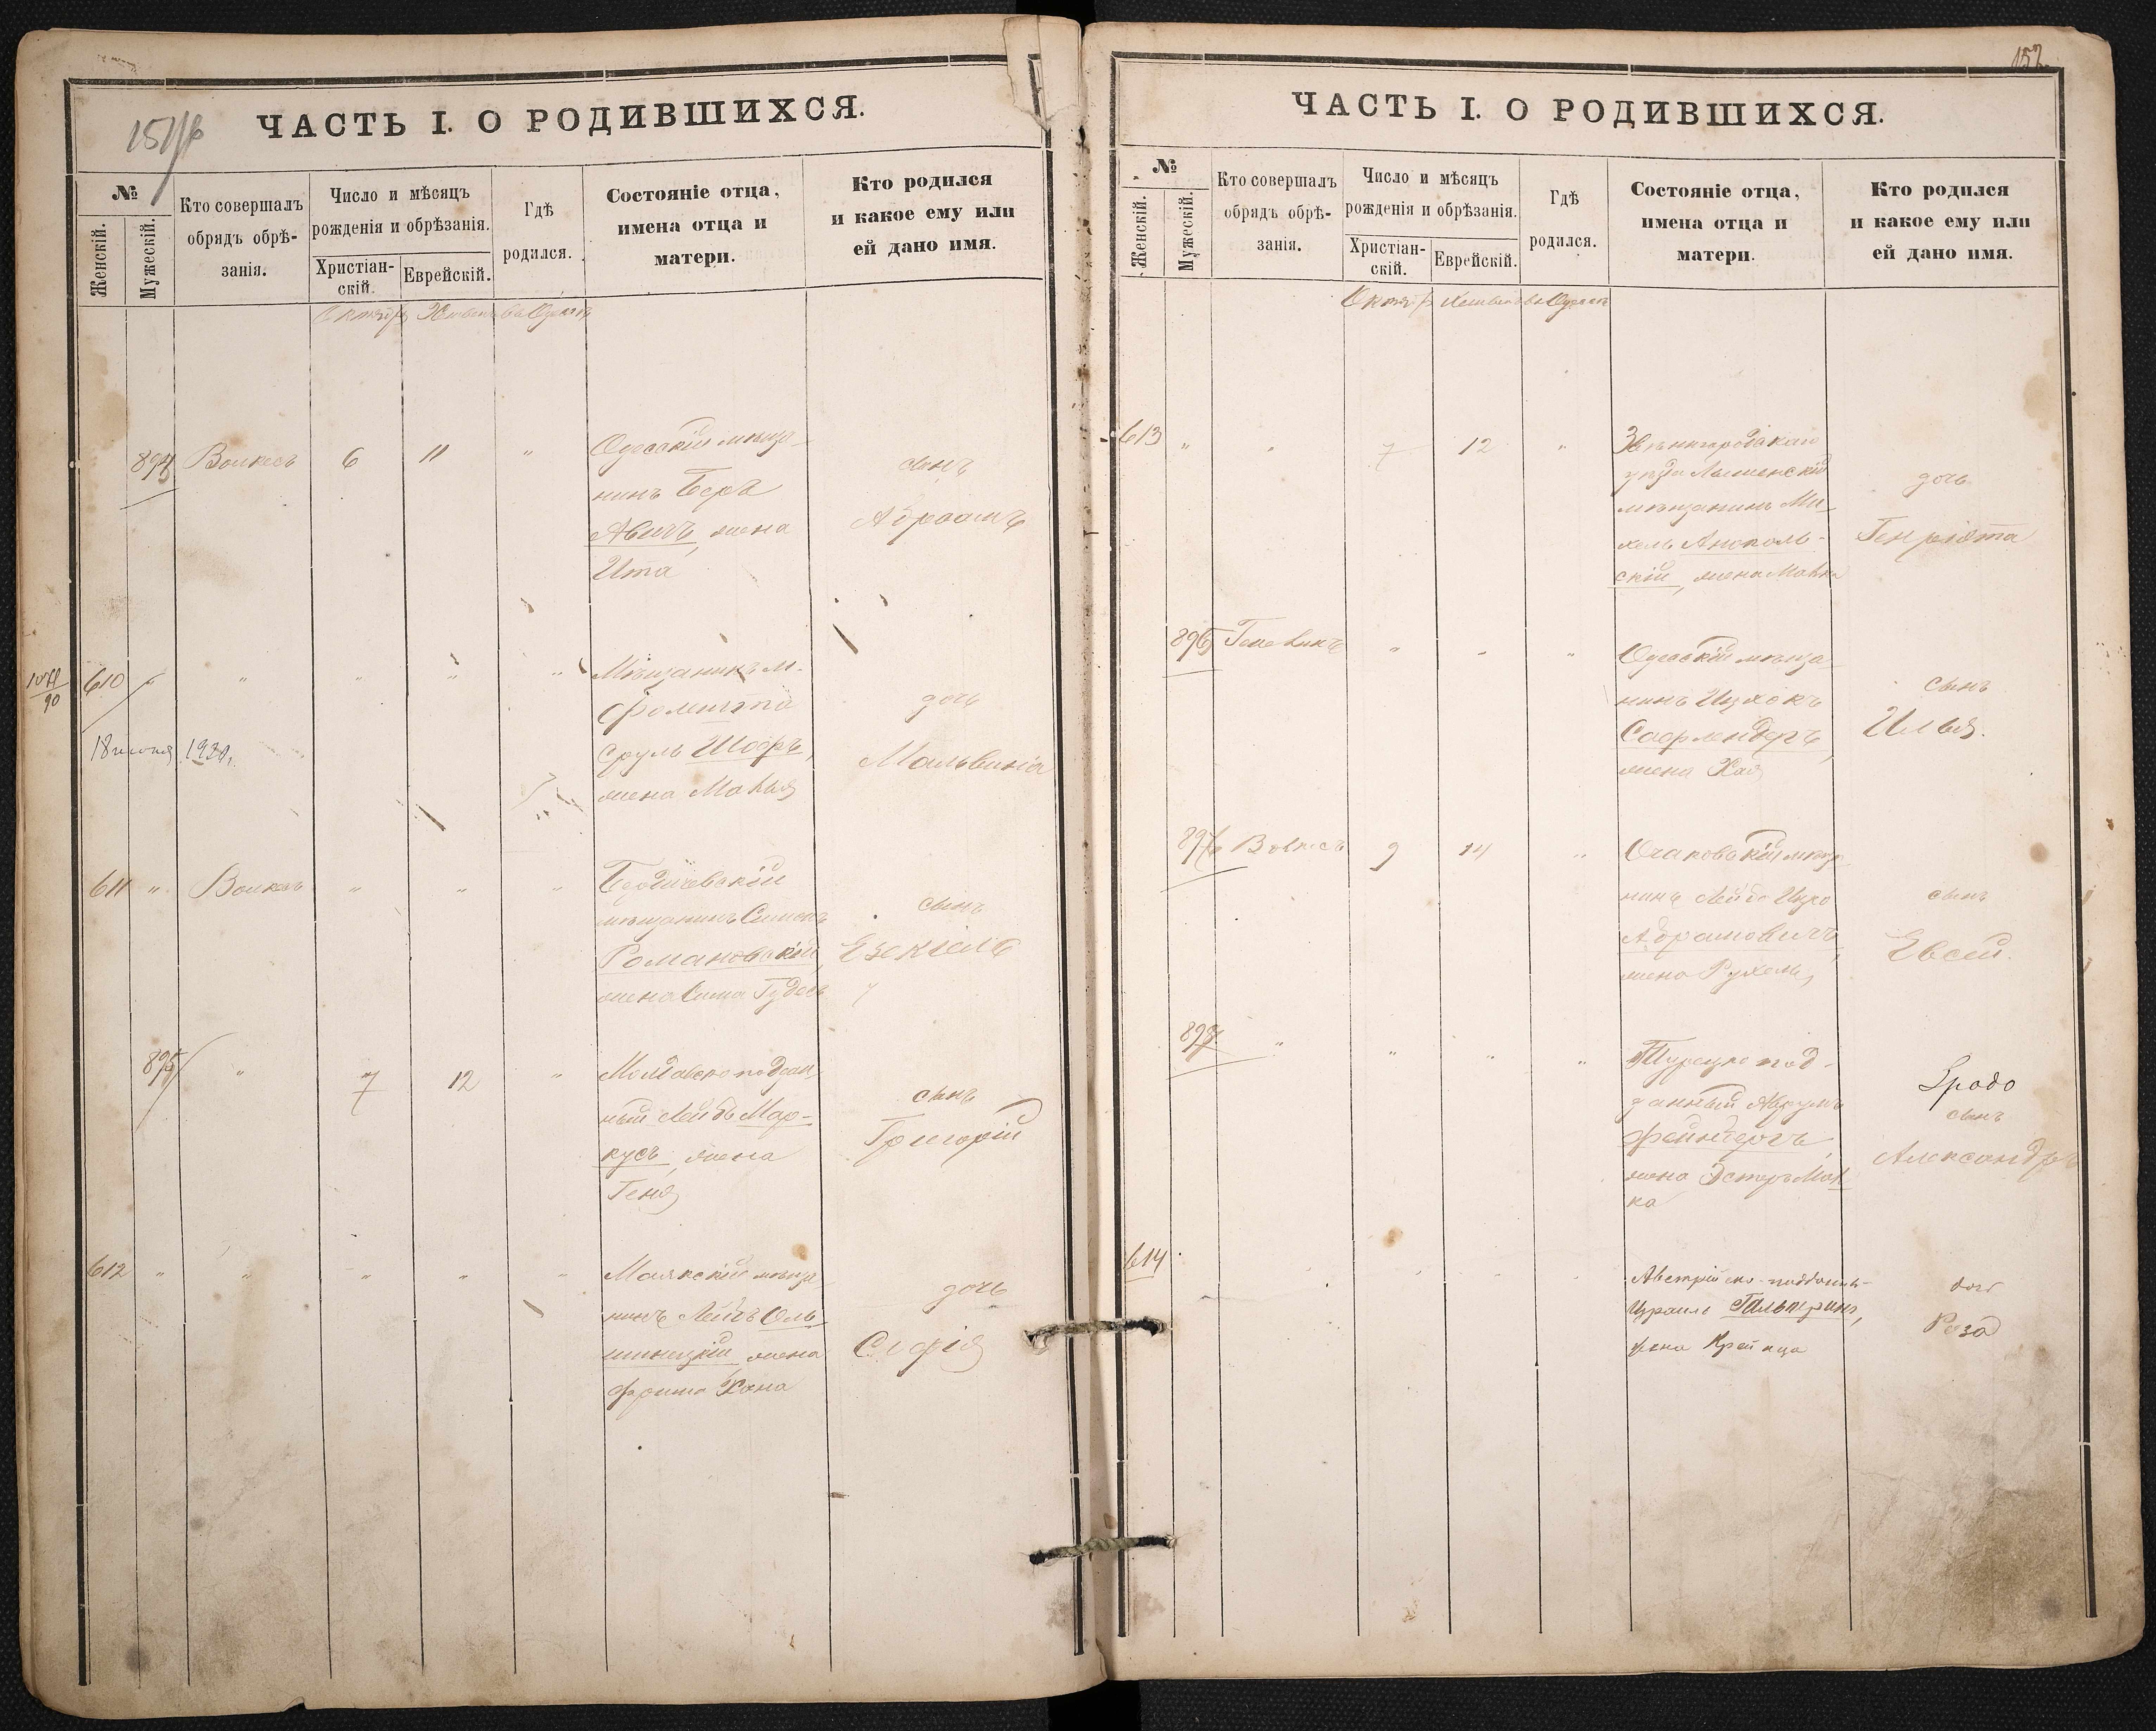 151
ЧАСТЬ I. О РОДИВШИХСЯ.
№
Женскій.
Мужескій.
Кто совершалъ
обрядъ обрѣ-
занія.
Число и мѣсяцъ
рожденія и обрѣзанія.
Христіан-
скій.
Еврейскій.
Гдѣ
родился.
Состояніе отца,
имена отца и
матери.
Кто родился
и какое ему или
ей дано имя.
894
6
11
"
Одесскій мѣща-
нинъ Беръ
жена
Ита
сынъ
Абраамъ
610
"
"
"
"
"
Мѣщанинъ м.
Сруль Шофъ,
жена Малья
дочь
Мальвина
18 июня
611
"
"
"
"
Бердичевскій
мѣщанинъ Симонъ
Романовскій,
жена Сима Гудесь
сынъ
Езекіель
895
"
7
12
"
Молдавскоподдан-
ный Лейбъ Мар-
кусъ, жена
Геня
сынъ
Григорій
612
"
"
"
"
"
Маякскій мѣща-
нинъ Лейбъ Оль-
шанецкій, жена
Фрима Хана
дочь
Софія
152.
ЧАСТЬ I. О РОДИВШИХСЯ.
№
Женскій.
Мужескій.
Кто совершалъ
обрядъ обрѣ-
занія.
Число и мѣсяцъ
рожденія и обрѣзанія.
Христіан-
скій.
Еврейскій.
Гдѣ
родился.
Состояніе отца,
имена отца и
матери.
Кто родился
и какое ему или
ей дано имя.
Октяб
въ Одессѣ
613
"
"
7
12
"
Звенигородскаго
уѣзда
мѣщанинъ Ми-
хель Анополь-
скій, жена Малка
дочь
Генріэта
896
"
"
"
Одесскій мѣща-
нинъ Ицхокъ
жена Хая
сынъ
Илья.
897
9
14
"
Очаковскій мѣща-
нинъ Лейбъ
Абрамовичъ,
жена Рухель
сынъ
Евсей.
898
"
"
"
"
Турецко под-
данный Абрумъ
Фейнбергъ,
жена Эстеръ Мал-
ка
сынъ
Александръ
614
Австрійско-поддан-
Израиль Гальперинъ,
жена Крейнца
дочь
Роза